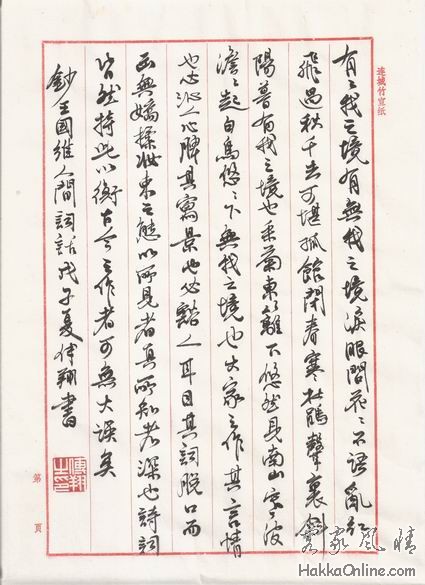 连城竹宣纸
有々我之境有無我之境淚眼問花々不語亂紅
飛過秋千去可堪孤館閉春寒杜鵑聲裏斜
陽暮有我之境也采菊東籬下悠然見南山寒波
澹々起白鳥悠々下無我之境也大家之作其言情
也必沁人心脾其寫景也必豁人耳目其詞脫口而
出無矯揉妝束之態以所見者真所知者深也詩詞
皆然持此以衡古今之作者可無大誤矣
鈔王國維人間詞話戊子夏傅翔書
傅翔之印
第 頁
客家風情
HakkaOnline.com